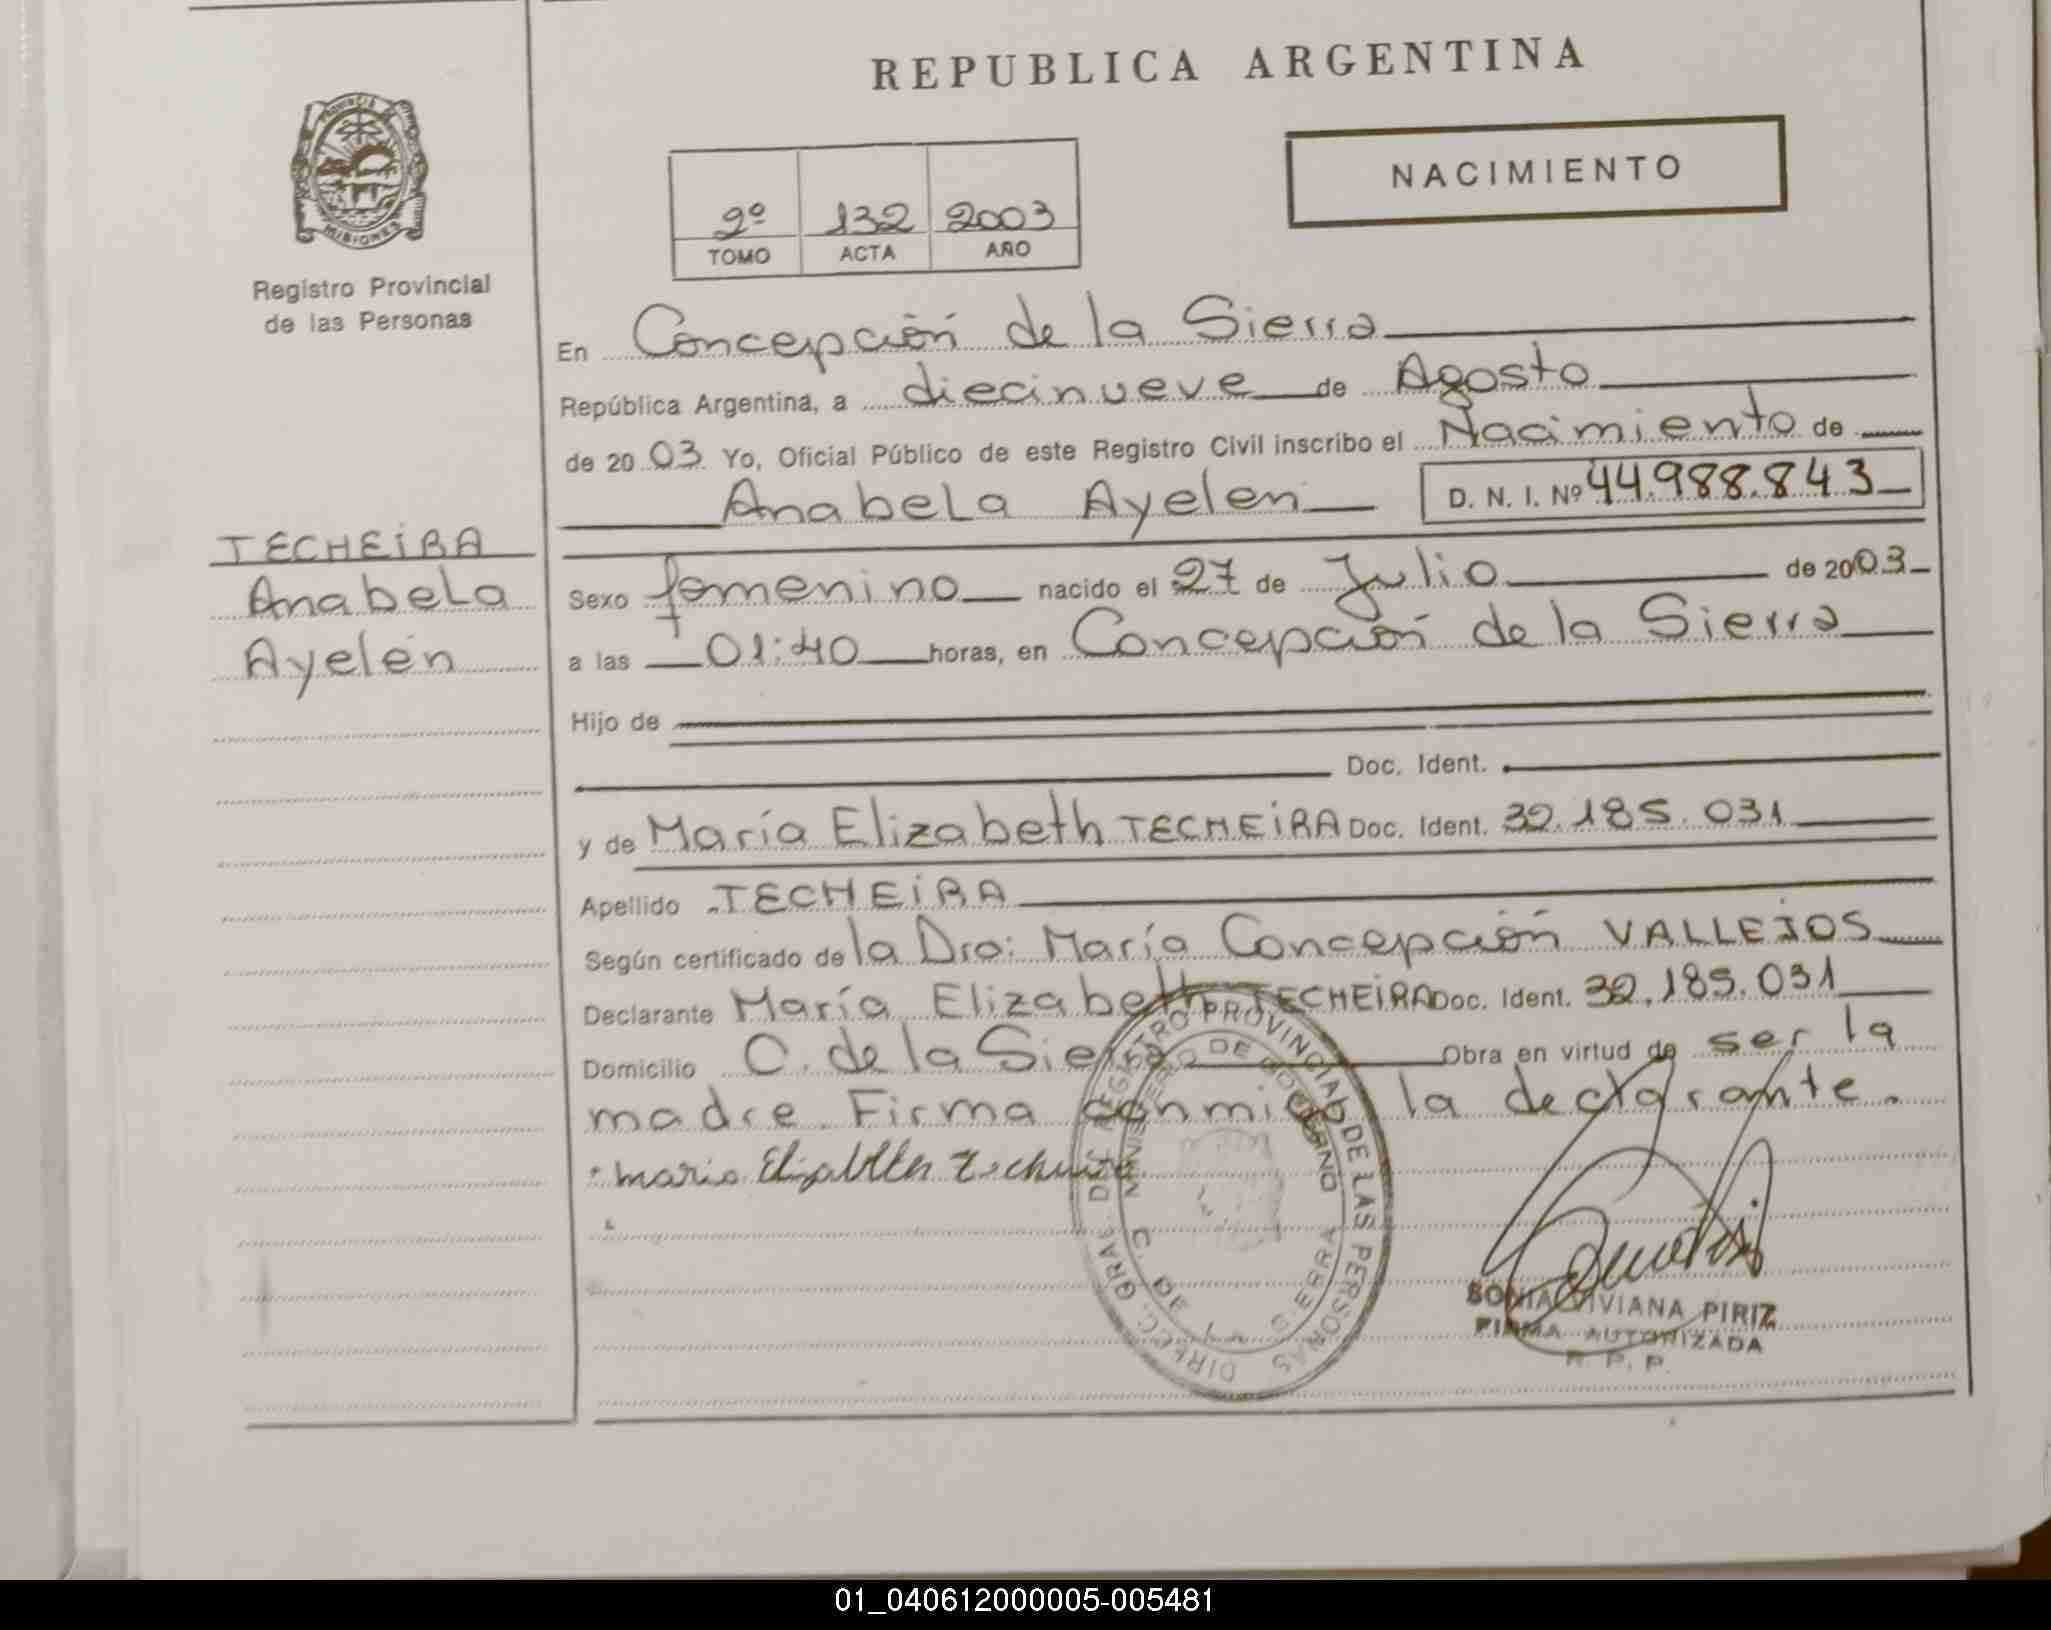 REPUBLICA ARGENTINA
PROVINCIA DE
MISIONES
Registro Provincial
de las Personas
NACIMIENTO
2º 132 2003
TOMO ACTA AÑO
En Concepción de la Sierra
República Argentina, a diecinueve de Agosto
de 2003 Yo, Oficial Público de este Registro Civil inscribo el Nacimiento de
Anabela Ayelen D. N. I. Nº 44.988.843
TECHEiRA
Anabela
Ayelen
Sexo femenino nacido el 27 de Julio de 2003
a las 01:40 horas, en Concepción de la Sierra
Hijo de
Doc. Ident.
y de María Elizabeth TECHEiRA Doc. Ident. 32.185.031
Apellido TECHEiRA
Según certificado de la Dra: María Concepción VALLEJOS
Declarante María Elizabeth TECHEiRA Doc. Ident. 32.185.031
Domicilio C. de la Sierra Obra en virtud de ser la
madre. Firma conmigo la declarante.
Maria Elizabeth Techeira
DIREC. GRAL. DEL REGISTRO PROVINCIAL DE LAS PERSONAS
MINISTERIO DE GOBIERNO
C. DE SIERRA
SONIA VIVIANA PIRIZ
FIRMA AUTORIZADA
R. P. P.
01_040612000005-005481